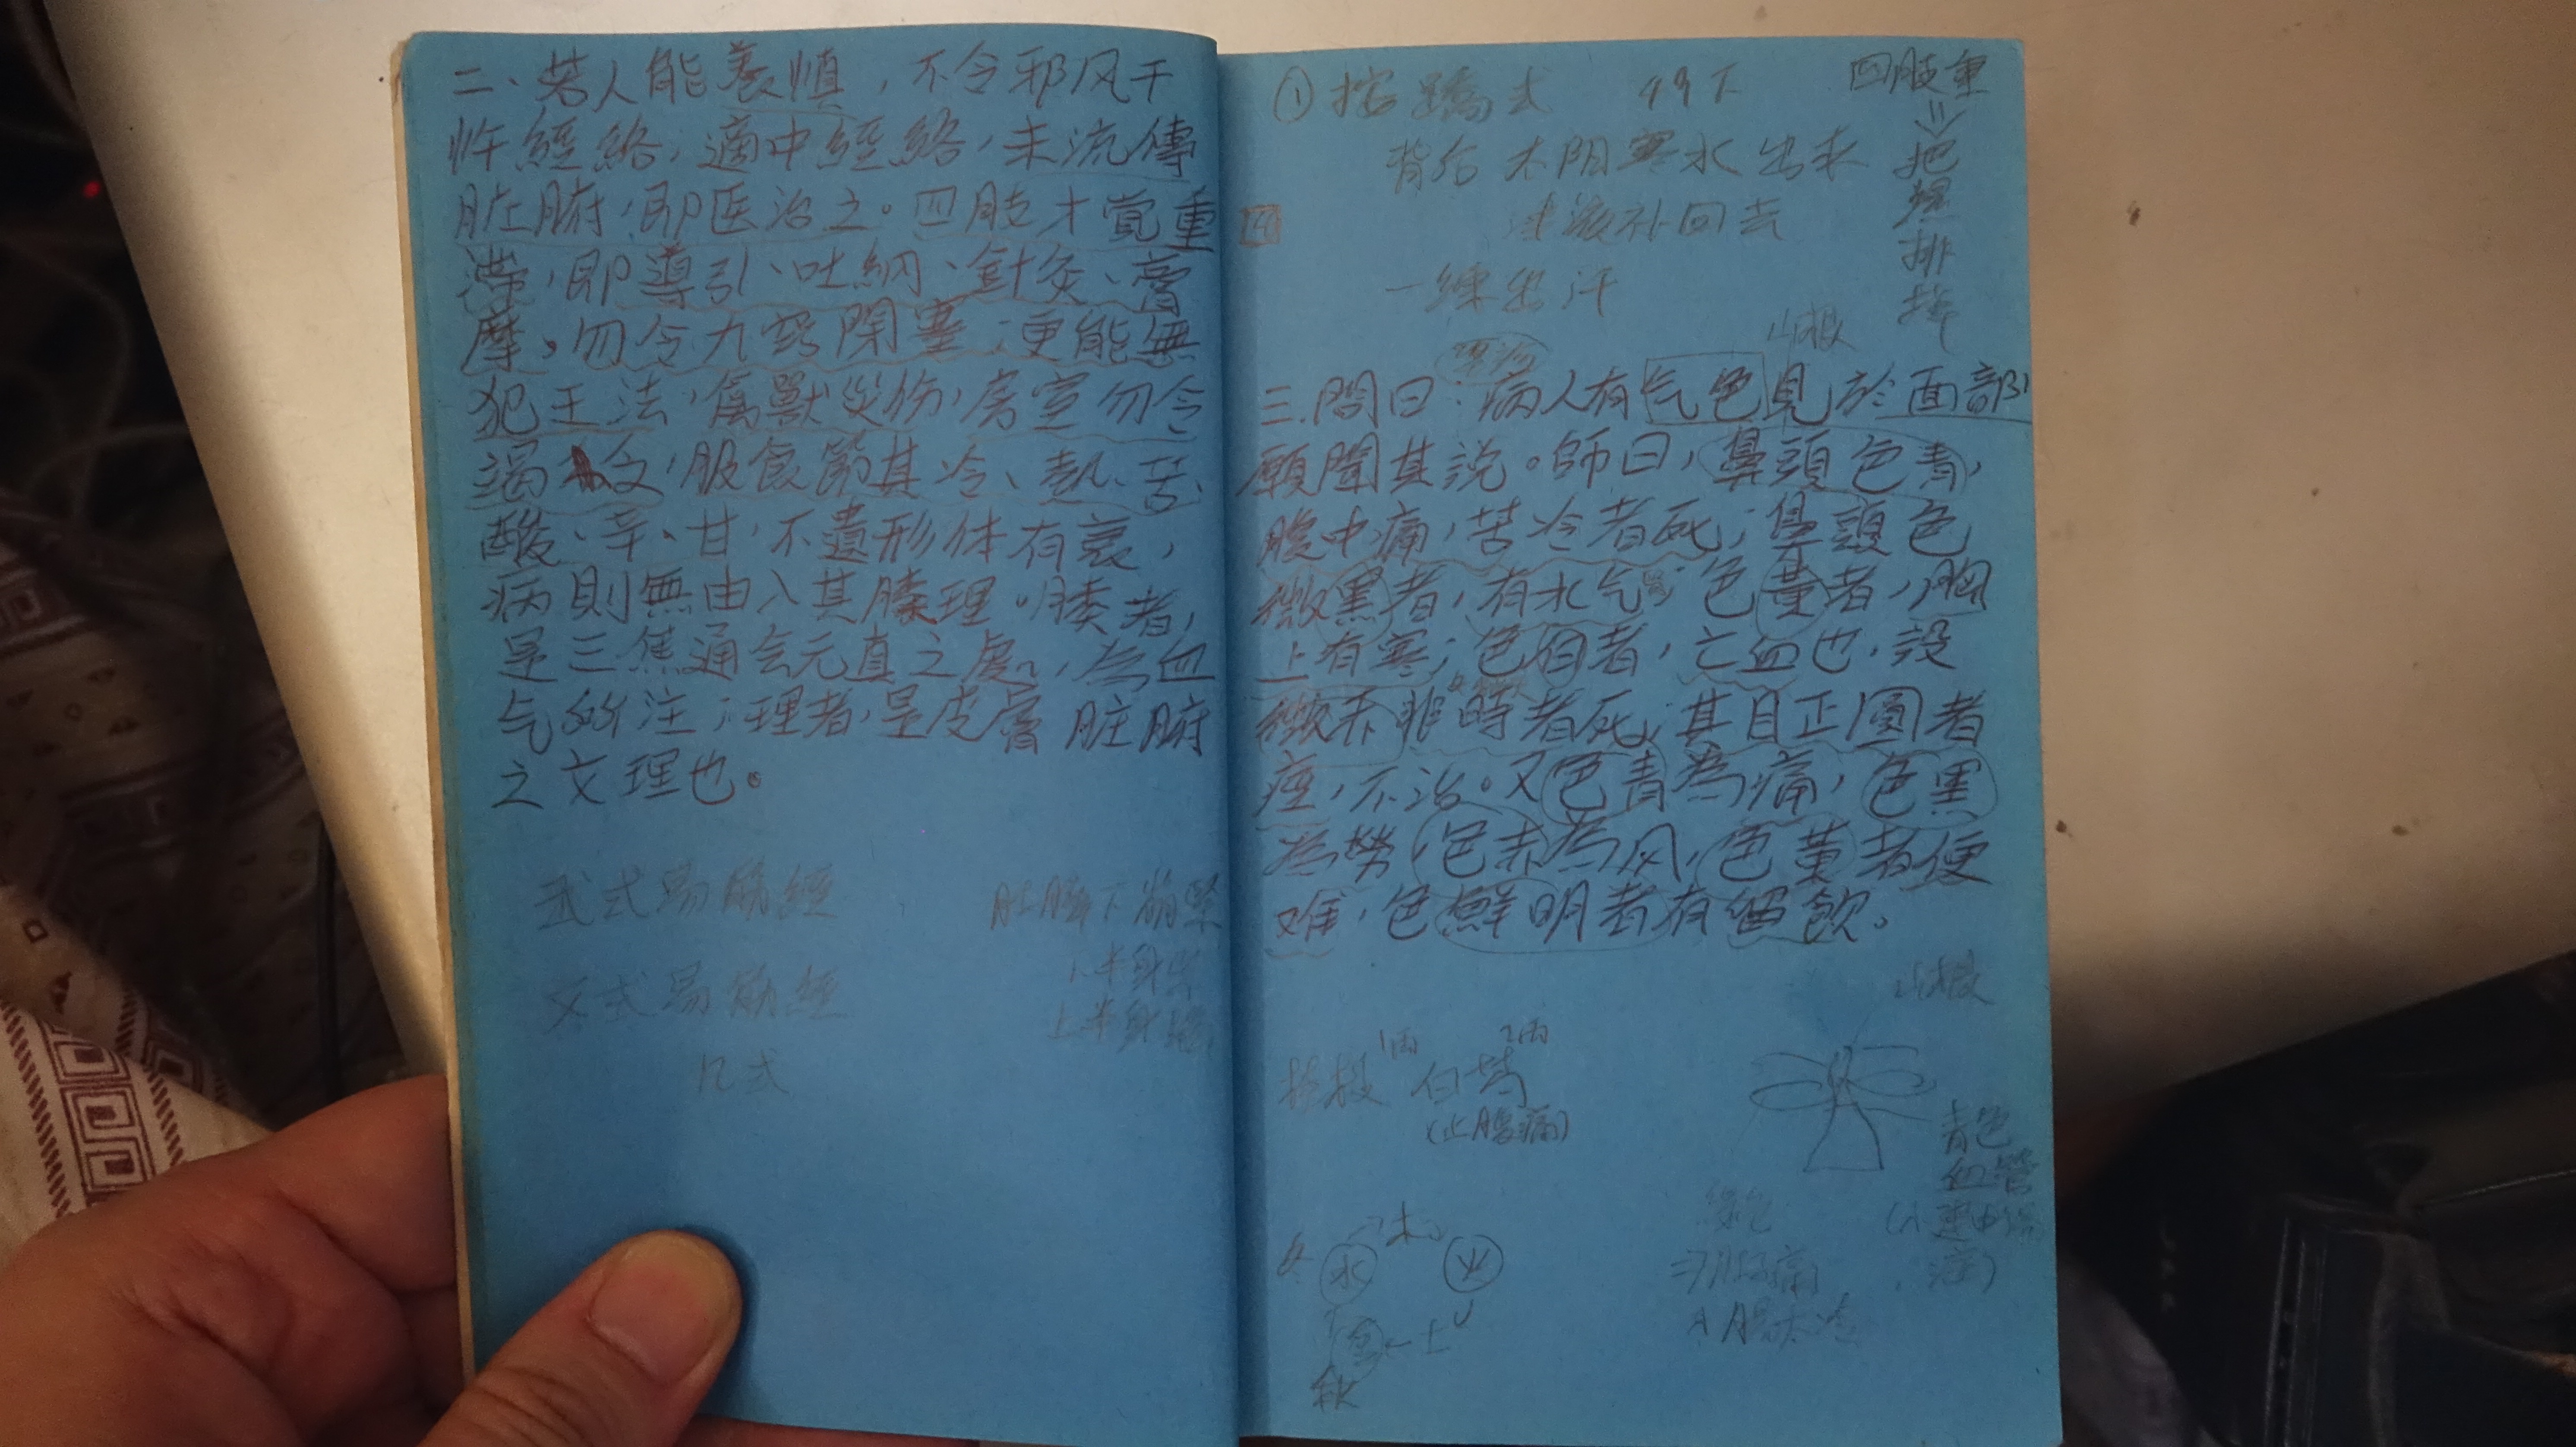 二、若人能养慎，不令邪风干
忤經絡，適中經絡，未流傳
脏腑，即医治之。四肢才覚重
滯，即導引、吐納、針灸、膏
摩。勿令九竅閉塞；更能無
犯王法，禽獸災伤，房室勿令
竭乏，服食節其冷、熱、苦、
酸、辛、甘，不遺形体有衰，
病則無由入其腠理。腠者，
是三焦通会元真之處，為血
气所注；理者，是皮膚脏腑
之文理也。
武式易筋經
文式易筋經
12式
下半身緊
上半身
① 按蹻式
背后太阳寒水出来
津液补回去
一練出汗
四肢重
⇓
把
濕
排
掉
山根
三.問曰：病人有气色見於面部
願聞其説。師曰，鼻頭色青，
腹中痛，苦冷者死；鼻頭色
微黑者，有水气；色黃者，胸
上有寒；色白者，亡血也，設
微赤非時者死；其目正圓者
痙，不治。又色青為痛，色黑
為勞，色赤為风，色黃者便
难，色鮮明者有留飲。
山根
1两 2两
桂枝 白芍
(止腹痛)
青色
血管
綠色
木
冬 水 火
金←土
秋